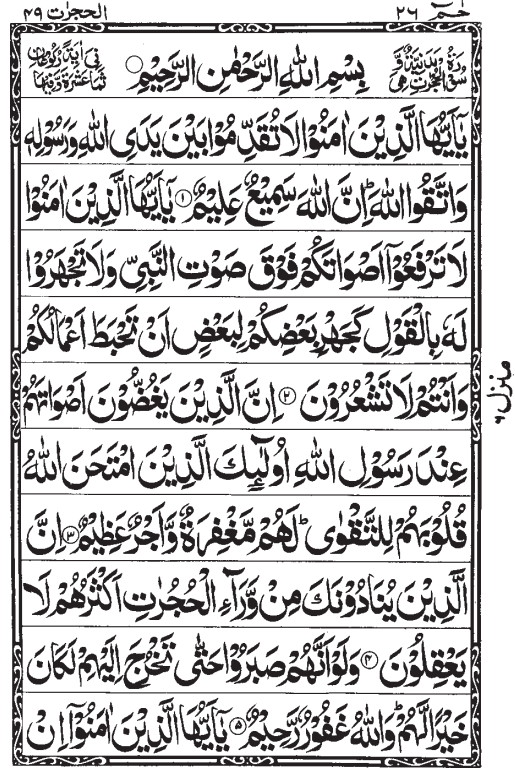 حٰمٓ ۲۶ الحجرٰت ۴۹
سُوْرَةُ الْحُجُرٰتِ مَدَنِيَّةٌ وَّهِيَ بِسْمِ اللّٰهِ الرَّحْمٰنِ الرَّحِيْمِ ثَمَانِيَ عَشْرَةَ اٰيَةً وَّفِيْهَا رُكُوْعَانِ
يٰٓاَيُّهَا الَّذِيْنَ اٰمَنُوْا لَا تُقَدِّمُوْا بَيْنَ يَدَيِ اللّٰهِ وَرَسُوْلِهٖ
وَاتَّقُوا اللّٰهَ ؕ اِنَّ اللّٰهَ سَمِيْعٌ عَلِيْمٌ ۱ يٰٓاَيُّهَا الَّذِيْنَ اٰمَنُوْا
لَا تَرْفَعُوْٓا اَصْوَاتَكُمْ فَوْقَ صَوْتِ النَّبِيِّ وَلَا تَجْهَرُوْا
لَهٗ بِالْقَوْلِ كَجَهْرِ بَعْضِكُمْ لِبَعْضٍ اَنْ تَحْبَطَ اَعْمَالُكُمْ
وَاَنْتُمْ لَا تَشْعُرُوْنَ ۲ اِنَّ الَّذِيْنَ يَغُضُّوْنَ اَصْوَاتَهُمْ
عِنْدَ رَسُوْلِ اللّٰهِ اُولٰٓئِكَ الَّذِيْنَ امْتَحَنَ اللّٰهُ
قُلُوْبَهُمْ لِلتَّقْوٰى ؕ لَهُمْ مَّغْفِرَةٌ وَّاَجْرٌ عَظِيْمٌ ۳ اِنَّ
الَّذِيْنَ يُنَادُوْنَكَ مِنْ وَّرَآءِ الْحُجُرٰتِ اَكْثَرُهُمْ لَا
يَعْقِلُوْنَ ۴ وَلَوْ اَنَّهُمْ صَبَرُوْا حَتّٰى تَخْرُجَ اِلَيْهِمْ لَكَانَ
خَيْرًا لَّهُمْ ؕ وَاللّٰهُ غَفُوْرٌ رَّحِيْمٌ ۵ يٰٓاَيُّهَا الَّذِيْنَ اٰمَنُوْٓا اِنْ
منزل ۶